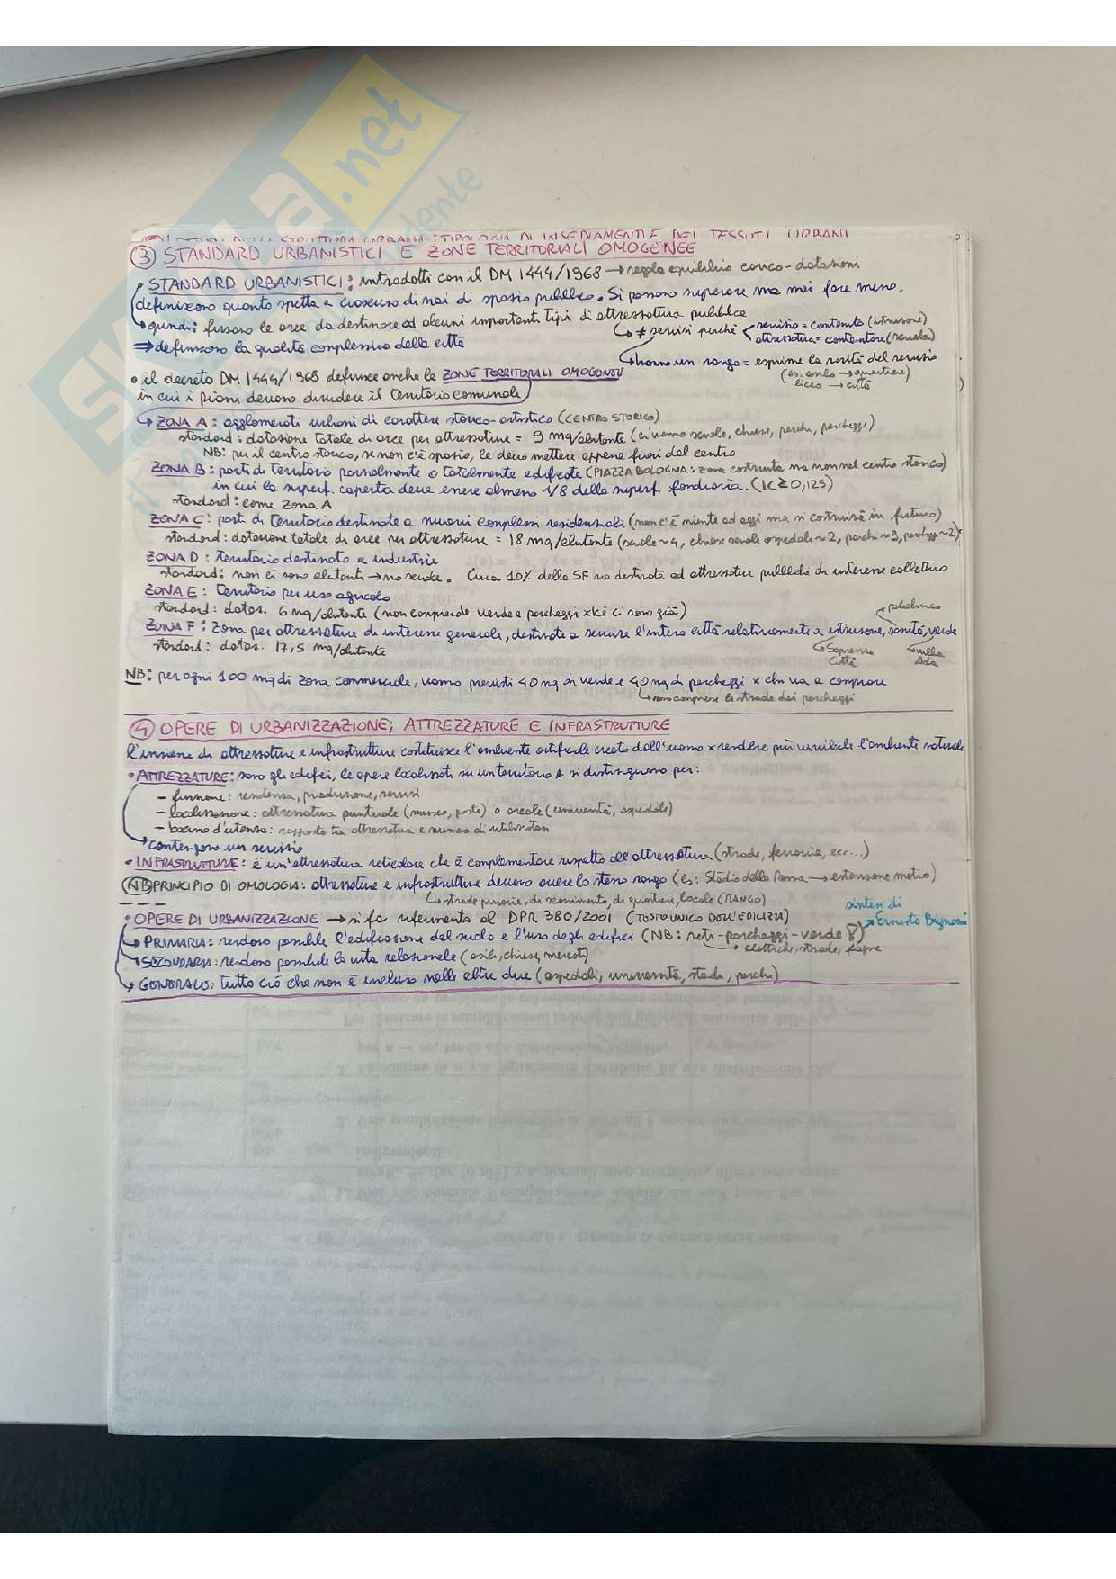 SKUOLA.net
③ STANDARD URBANISTICI E ZONE TERRITORIALI OMOGENEE
STANDARD URBANISTICI: introdotti con il DM 1444/1968 → regola equilibrio carico-dotazioni
definiscono quanto spetta a ciascuno di noi di spazio pubblico. Si possono superare ma mai fare meno.
↳ quindi: fissano le aree da destinare ad alcuni importanti tipi di attrezzatura pubblica
↳ ≠ servizi perché servizio = contenuto (istruzione)
attrezzatura = contenitore (scuola)
⇒ definiscono la qualità complessiva della città
↳ hanno un rango = esprime la rarità del servizio
(es. asilo → quartiere)
liceo → città
• il decreto DM 1444/1968 definisce anche le ZONE TERRITORIALI OMOGENEE
in cui i piani devono dividere il territorio comunale
↳ ZONA A: agglomerati urbani di carattere storico-artistico (CENTRO STORICO)
standard: dotazione totale di aree per attrezzature = 9 mq/abitante (ci vanno scuole, chiese, parchi, parcheggi)
NB: per il centro storico, se non c'è spazio, le devo mettere appena fuori dal centro
ZONA B: parti di territorio parzialmente o totalmente edificate (PIAZZA BOLOGNA: zona costruita ma non nel centro storico)
in cui la superf. coperta deve essere almeno 1/8 della superf. fondiaria. (IC ≥ 0,125)
standard: come zona A
ZONA C: parti di territorio destinate a nuovi complessi residenziali (non c'è niente ad oggi ma si costruirà in futuro)
standard: dotazione totale di aree per attrezzature = 18 mq/abitante
ZONA D: territorio destinato a industrie
standard: non ci sono abitanti → no scuole. Circa 10% della SF va destinata ad attrezzature pubbliche di interesse collettivo
ZONA E: territorio per uso agricolo
standard: dotaz. 6 mq/abitante (non comprende verde e parcheggi xké ci sono già)
ZONA F: zona per attrezzature di interesse generale, destinate a servire l'intera città relativamente a istruzione, sanità, verde
policlinico
Sapienza
Città
villa
Ada
standard: dotaz. 17,5 mq/abitante
NB: per ogni 100 mq di zona commerciale, vanno previsti 40 mq di verde e 40 mq di parcheggi x chi va a comprare
↳ non comprese le strade dei parcheggi
④ OPERE DI URBANIZZAZIONE, ATTREZZATURE E INFRASTRUTTURE
l'insieme di attrezzature e infrastrutture costituisce l'ambiente artificiale creato dall'uomo x rendere più vivibile l'ambiente naturale
• ATTREZZATURE: sono gli edifici, le opere localizzati su un territorio e si distinguono per:
– funzione: residenza, produzione, servizi
– localizzazione: attrezzatura puntuale (museo, posta) o areale (università, ospedale)
– bacino d'utenza: rapporto tra attrezzatura e numero di utilizzatori
↳ contengono un servizio
• INFRASTRUTTURE: è un'attrezzatura reticolare che è complementare rispetto all'attrezzatura. (strade, ferrovia, ecc...)
NB PRINCIPIO DI OMOLOGIA: attrezzature e infrastrutture devono avere lo stesso rango (es: Stadio della Roma → estensione metro)
↳ strade primarie, di scorrimento, di quartiere, locale (RANGO)
• OPERE DI URBANIZZAZIONE → si fa riferimento al DPR 380/2001 (TESTO UNICO DELL'EDILIZIA)
sintesi di
Ernesto
↳ PRIMARIA: rendono possibile l'edificazione del suolo e l'uso degli edifici (NB: reti-parcheggi-verde)
elettriche, strade, fogne
↳ SECONDARIA: rendono possibile la vita relazionale (asili, chiese, mercati)
↳ GENERALE: tutto ciò che non è incluso nelle altre due (ospedali, università, stadi, parchi)